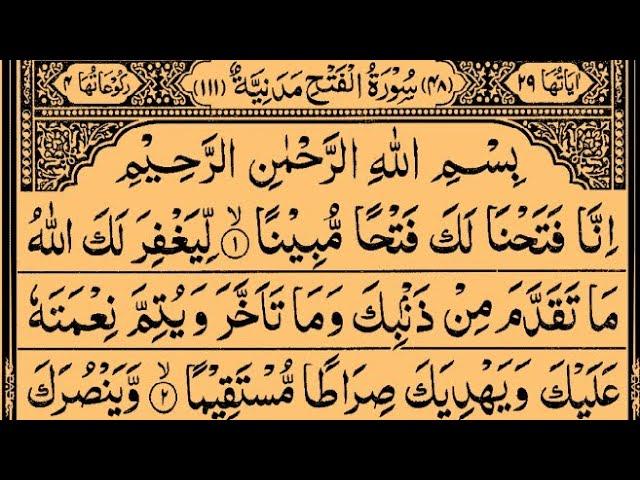 اٰیَاتُهَا ٢٩ (٤٨) سُوْرَةُ الْفَتْحِ مَدَنِیَّةٌ (١١١) رُكُوْعَاتُهَا ٤
بِسْمِ اللّٰهِ الرَّحْمٰنِ الرَّحِیْمِ
اِنَّا فَتَحْنَا لَكَ فَتْحًا مُّبِیْنًا ۙ﴿١﴾ لِّیَغْفِرَ لَكَ اللّٰهُ
مَا تَقَدَّمَ مِنْ ذَنْۢبِكَ وَمَا تَاَخَّرَ وَیُتِمَّ نِعْمَتَهٗ
عَلَیْكَ وَیَهْدِیَكَ صِرَاطًا مُّسْتَقِیْمًا ۙ﴿٢﴾ وَّیَنْصُرَكَ